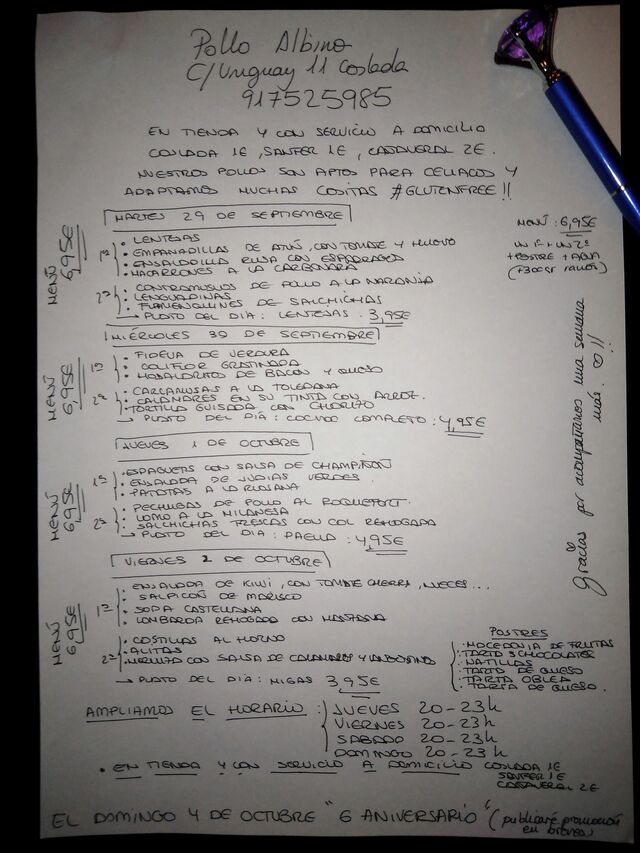 Pollo Albino
C/Uruguay 11 Coslada
917525985
EN TIENDA Y CON SERVICIO A DOMICILIO
COSLADA 1E, SANFER 1E, CAÑAVERAL 2E.
NUESTROS POLLOS SON APTOS PARA CELIACOS Y
ADAPTAMOS MUCHAS COSITAS #GLUTENFREE!!
MARTES 29 DE SEPTIEMBRE
MENÚ 6,95E
1º
· LENTEJAS
· EMPANADILLAS DE ATÚN, CON TOMATE Y HUEVO
· ENSALADILLA RUSA CON ESPARRAGOS
· MACARRONES A LA CARBONARA
2º
· CONTRAMUSLOS DE POLLO A LA NARANJA
· LENGUADINAS
· FLAMENQUINES DE SALCHICHAS
→ PLATO DEL DÍA: LENTEJAS: 3,95E
MENÚ: 6,95E
UN 1º + UN 2º
+ POSTRE + AGUA
MIÉRCOLES 30 DE SEPTIEMBRE
MENÚ 6,95E
1º
· FIDEUA DE VERDURA
· COLIFLOR GRATINADA
· HOJALDRITO DE BACON Y QUESO
2º
· CARCAMUSAS A LA TOLEDANA
· CALAMARES EN SU TINTA CON ARROZ.
· TORTILLA GUISADA CON CHORIZO
→ PLATO DEL DIA: COCIDO COMPLETO: 4,95E
JUEVES 1 DE OCTUBRE
MENÚ 6,95E
1º
· ESPAGUETIS CON SALSA DE CHAMPIÑON
· ENSALADA DE JUDIAS VERDES.
· PATATAS A LA RIOJANA
2º
· PECHUGAS DE POLLO AL ROQUEFORT.
· LOMO A LA MILANESA
· SALCHICHAS FRESCAS CON COL REHOGADA
→ PLATO DEL DIA: PAELLA: 4,95E
Gracias por acompañarnos una semana
más. !!
VIERNES 2 DE OCTUBRE
MENÚ 6,95E
1º
· ENSALADA DE KIWI, CON TOMATE CHERRY, NUECES...
· SALPICÓN DE MARISCO
· SOPA CASTELLANA
· LOMBARDA REHOGADA CON MANZANA
2º
· COSTILLAS AL HORNO
· ALITAS
· MERLUZA CON SALSA DE CALAMARES Y LANGOSTINO
→ PLATO DEL DIA: MIGAS 3,95E
POSTRES
· MACEDONIA DE FRUTAS
· TARTA 3 CHOCOLATES
· NATILLAS
· TARTA DE QUESO
· TARTA OBLEA
· TARTA DE QUESO.
AMPLIAMOS EL HORARIO:
JUEVES 20-23h
VIERNES 20-23h
SABADO 20-23h
DOMINGO 20-23h
· EN TIENDA Y CON SERVICIO A DOMICILIO COSLADA 1E
SANFER 1E
CAÑAVERAL 2E
EL DOMINGO 4 DE OCTUBRE "6 ANIVERSARIO" (publicaré promoción
en breve)